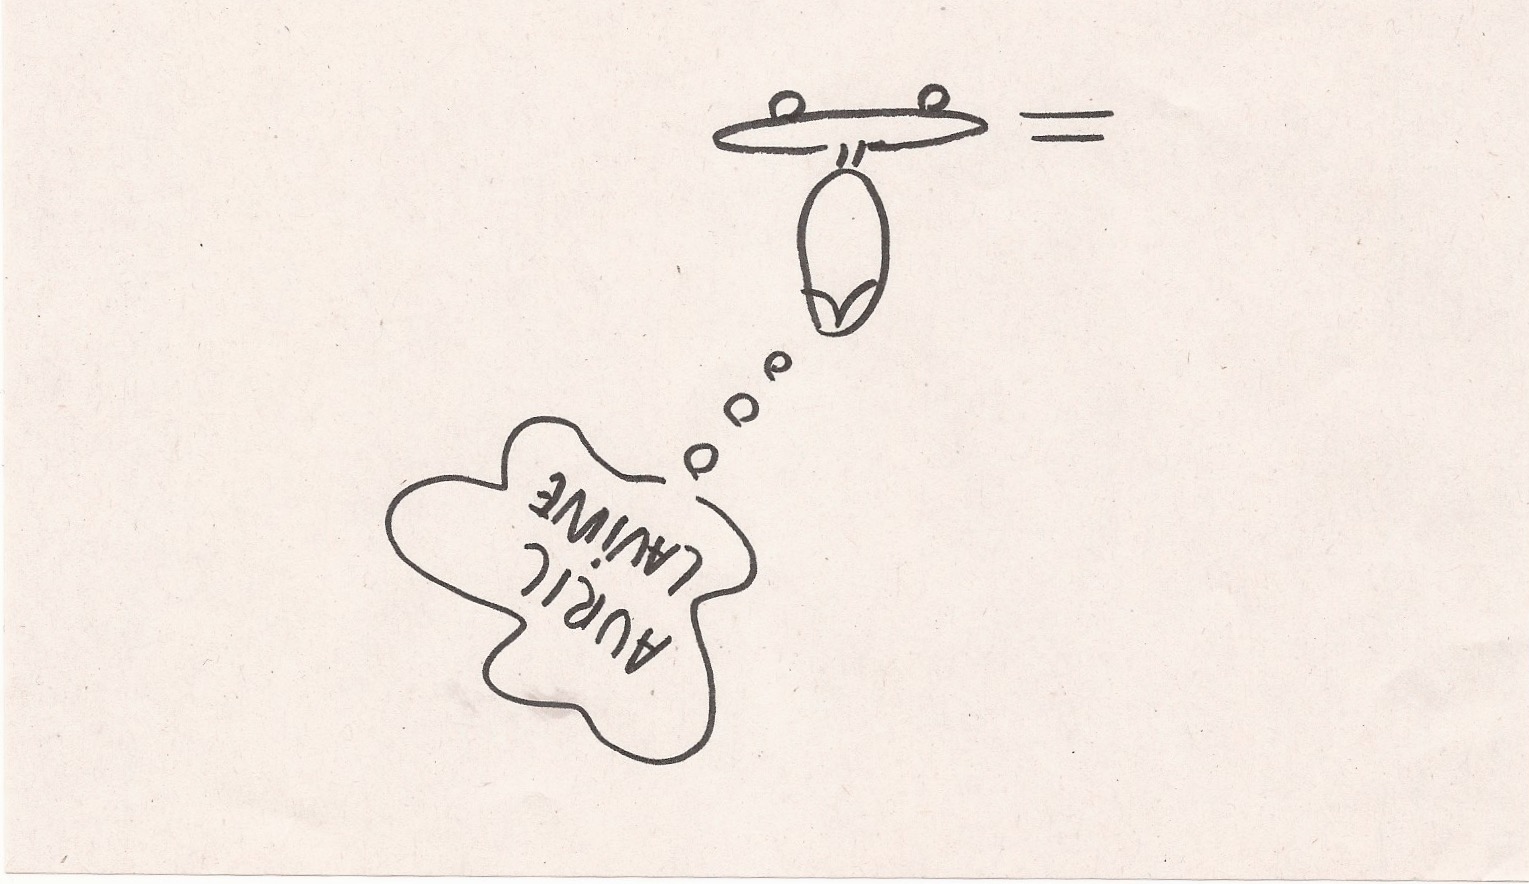 AVRIL
LAVINE